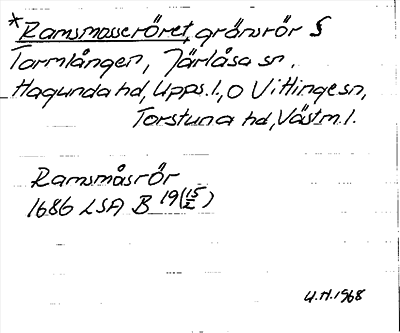 *Ramsmosseröret, gränsrör S
Tarmlången, Järlåsa sn,
Hagunda hd, Upps.l., O Vittinge sn,
Torstuna hd, Västm.l.
Ramsmåsrör
1686 LSA B 19(15/2)
U.H. 1968